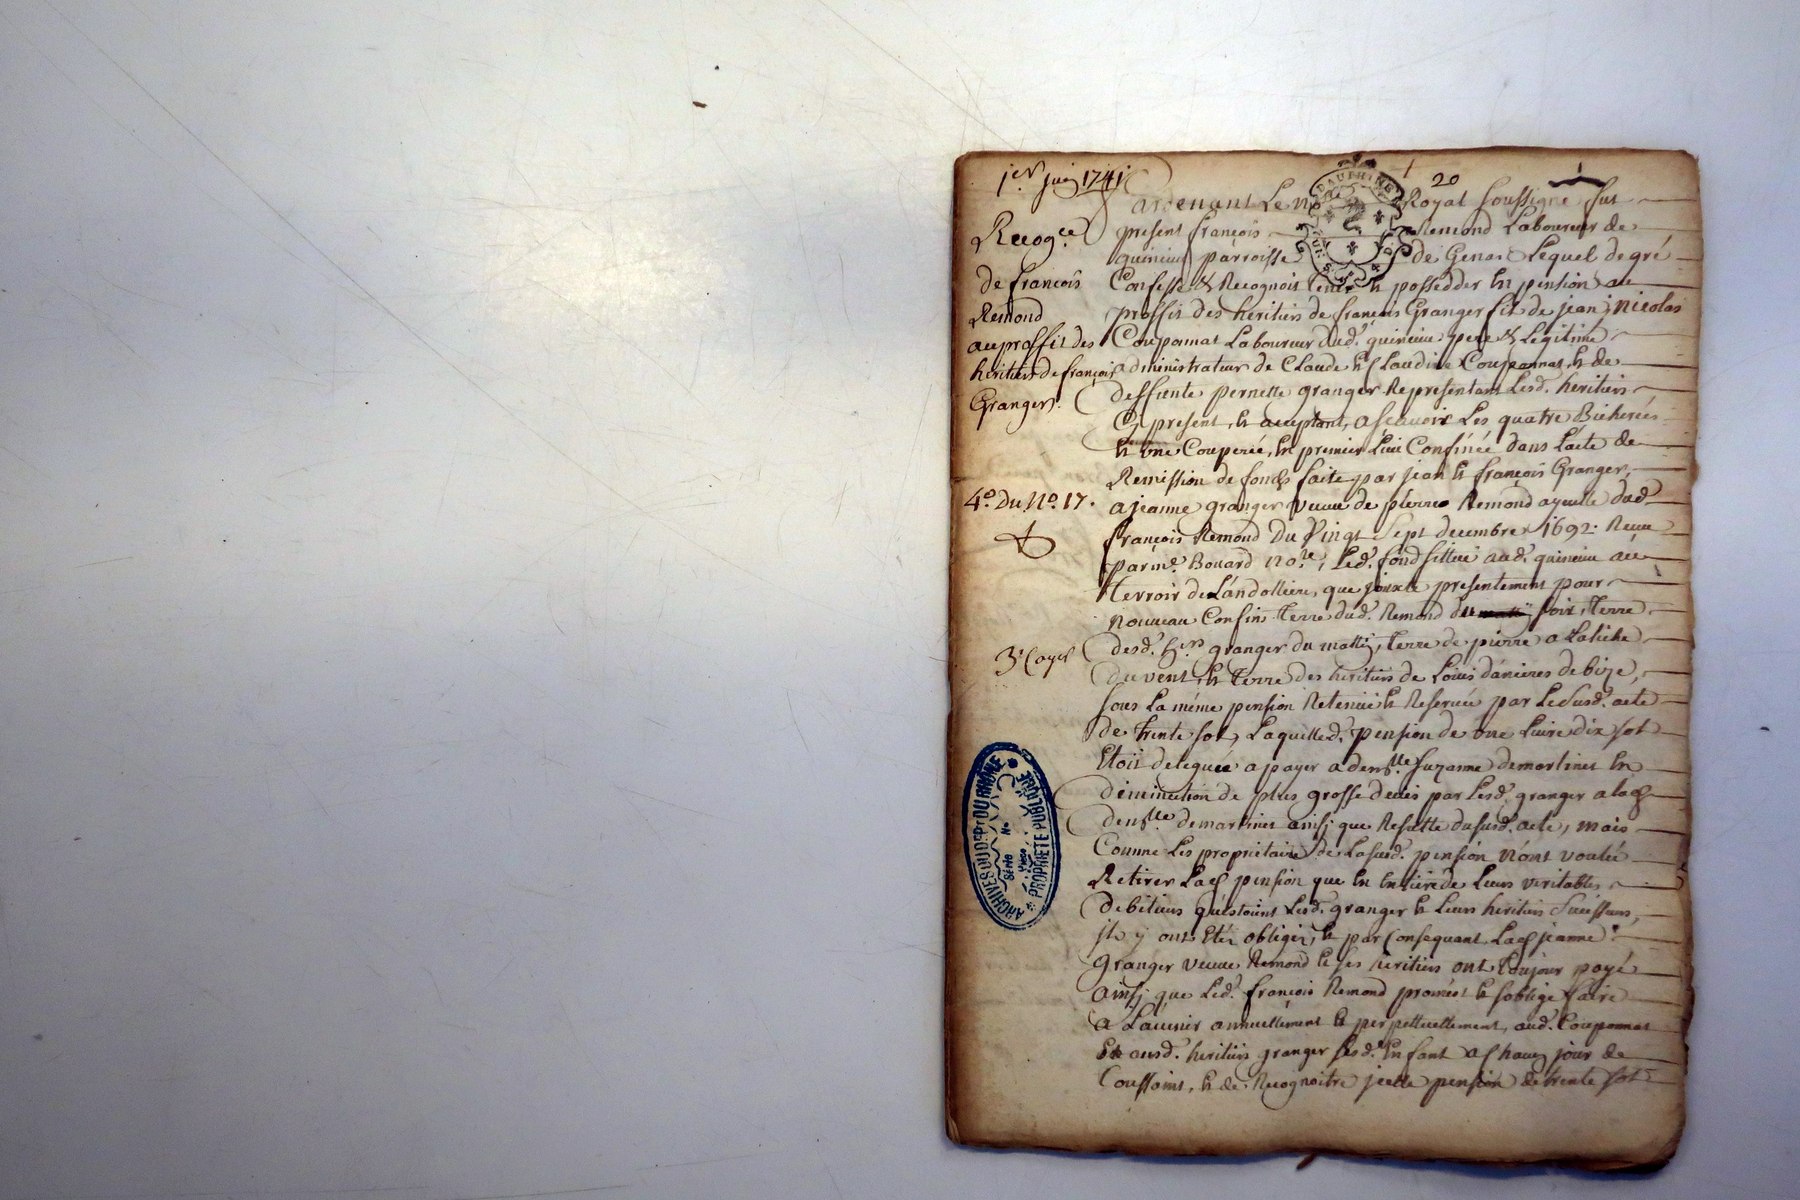 1er juin 1741
20
Recog.ce
de francois
Remond
au proffit des
heritiers de françois
Granger.
4.º Du Nº. 17.
3.e Cayer
Pardevant Le no.re Royal soussigné fut
present françois Remond Laboureur de
quincieu parroisse de Genas Lequel de gré
Confesse & Recognoit tenir & possedder en pension au
proffit des heritiers de françois Granger fils de jean, Nicolas
Couponnat Laboureur dud. quincieu pere & Legitime
administrateur de Claude & Claudine Couponnat, & de
deffunte pernette granger Representant Lesd. heritiers
Cy present, & acceptant, ascavoir Les quatre Bicherées
& une Couperée, en premier Lieu Confinée dans Lacte de
Remission de fonds faite par jean & françois Granger,
a jeanne granger veuve de pierre Remond ayeulle dud.
françois Remond Du Vingt Sept decembre 1692. Receu
par me. Bouard no.re, Led. fond sittué aud. quincieu au
Terroir de Landolliere, que jouxte presentement pour
nouveau Confins terre dud. Remond du soir, terre
desd. h.ers granger du mattin, terre de pierre
du vent, & terre des heritiers de Louis danieres de bize,
sous La même pension Retenue & Reservée par Le susd. acte
de trente sol, Laquelled. pension de une Livre dix sol
Etoit deleguée a payer a dem.lle Suzanne demartines en
diminution de plus grosse deües par Lesd. granger a lad.
dem.lle demartines ainsy que Resulte du susd. acte, mais
Comme Les proprietaires de La susd. pension n'ont voulu
Retirer Lad. pension que en entier de Leurs veritables
debiteurs qu'estoient Lesd. granger & Leurs heritiers Suisseurs,
ils y ont Etés obligés, & par Consequant Lad. jeanne
Granger veuve Remond & ses heritiers ont toujour payé
ainsy que Led. françois Remond promest & s'oblige faire
a Lavenir annuellement & perpettuellement, aud. Couponnat
Et ausd. heritiers granger sesd. Enfant a chaque jour de
Toussaint, & de Recognoitre jcelle pension de trente sol
DAUPHINE
ARCHIVES DU DÉPT DU RHÔNE
PROPRIÉTÉ PUBLIQUE
Série
No